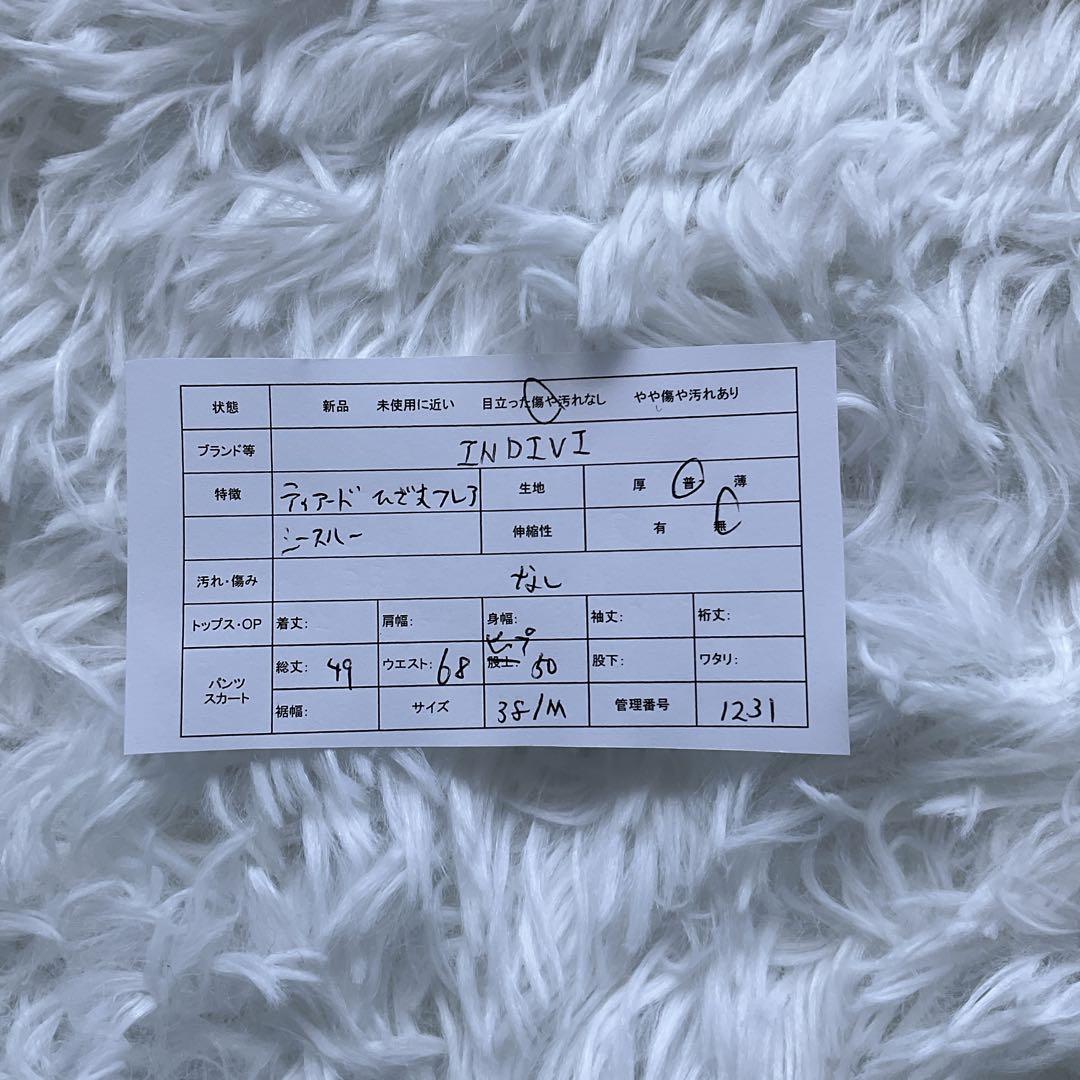 状態 新品 未使用に近い 目立った傷や汚れなし やや傷や汚れあり
ブランド等 INDIVI
特徴 ティアード ひざ丈フレア 生地 厚 普 薄
シースルー 伸縮性 有 無
汚れ・傷み なし
トップス・OP 着丈: 肩幅: 身幅: 袖丈: 裄丈:
パンツ スカート 総丈: 49 ウエスト: 68 股上 ヒップ 50 股下: ワタリ:
裾幅: サイズ 38/M 管理番号 1231